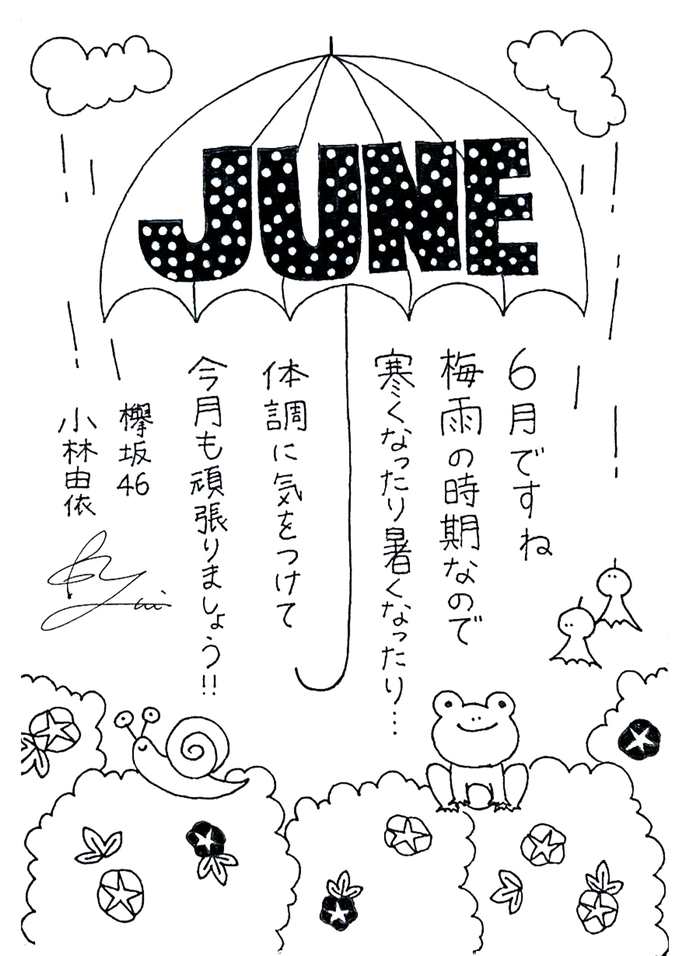 JUNE
6月ですね
梅雨の時期なので
寒くなったり暑くなったり…
体調に気をつけて
今月も頑張りましょう!!
欅坂46
小林由依